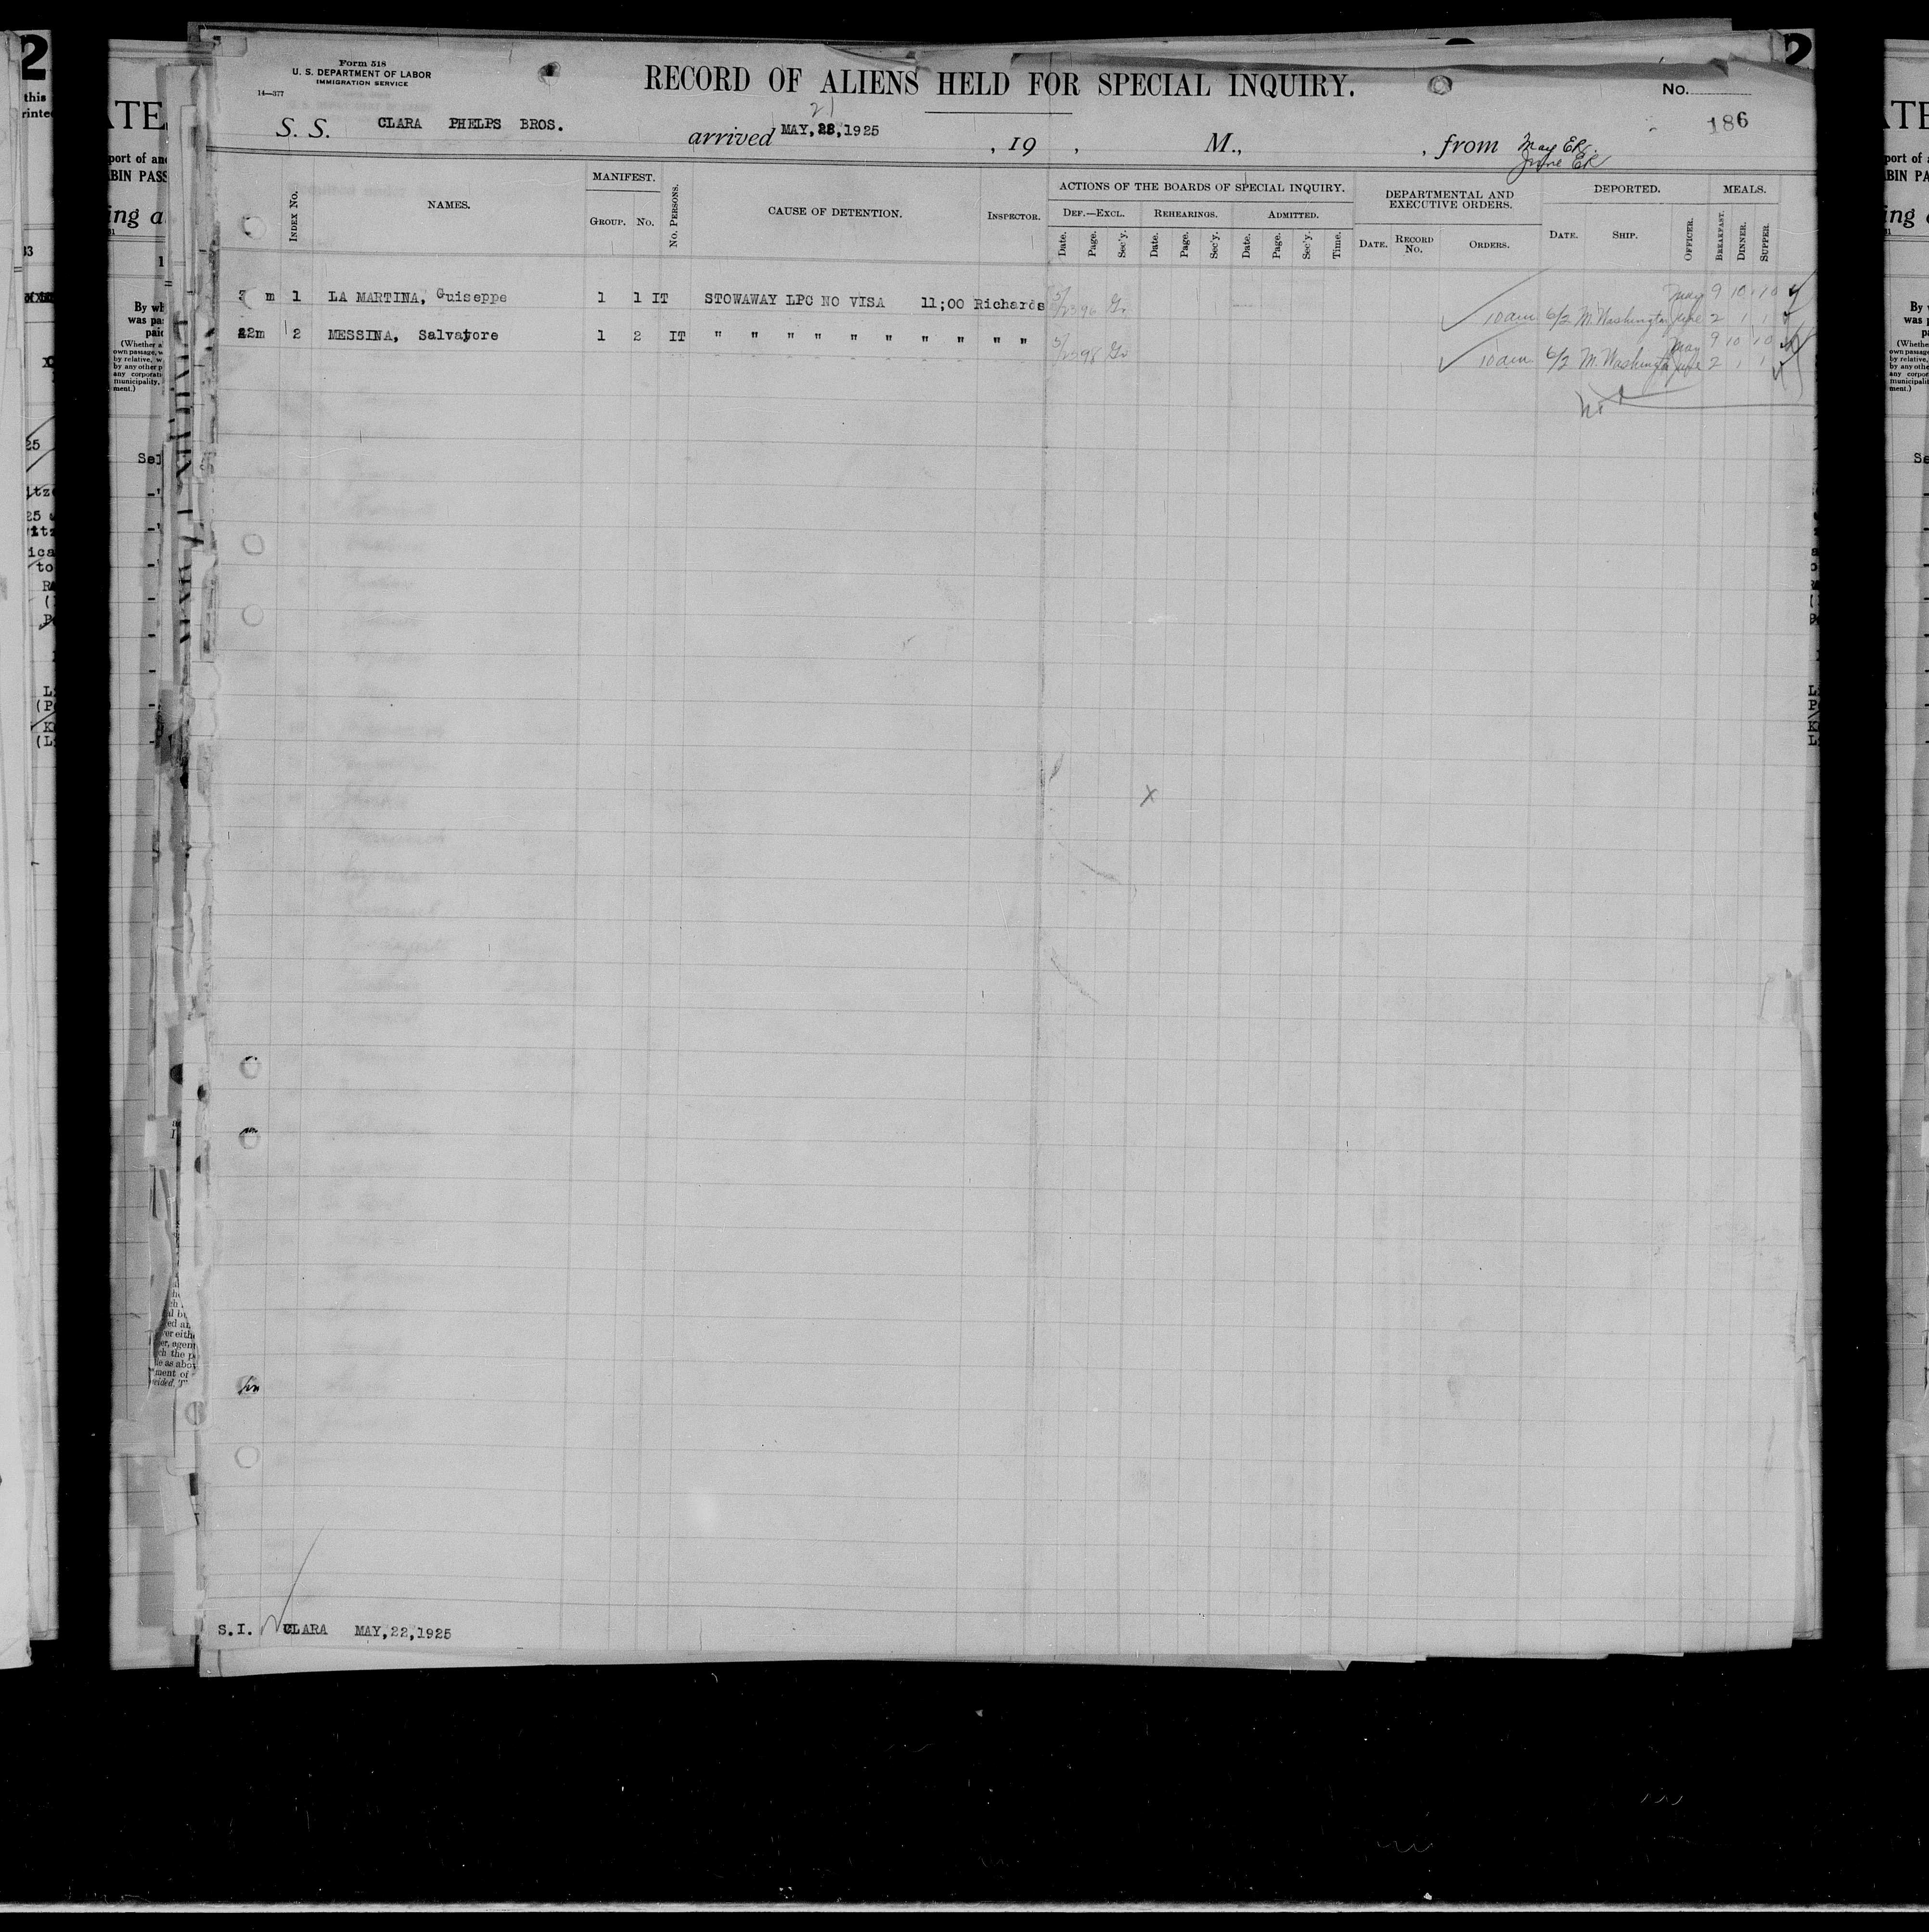 Form 518
U. S. DEPARTMENT OF LABOR
IMMIGRATION SERVICE
14—377
RECORD OF ALIENS HELD FOR SPECIAL INQUIRY.
No.
186
21
S. S. CLARA PHELPS BROS. arrived MAY, 1925, 19 , M., , from May ER.
June ER
INDEX NO. NAMES. MANIFEST. GROUP. NO. NO. PERSONS. CAUSE OF DETENTION. INSPECTOR. ACTIONS OF THE BOARDS OF SPECIAL INQUIRY. DEPARTMENTAL AND EXECUTIVE ORDERS. DEPORTED. MEALS.
DEF.—EXCL. REHEARINGS. ADMITTED.
Date. Page. Sec'y. Date. Page. Sec'y. Date. Page. Sec'y. Time. DATE. RECORD NO. ORDERS. DATE. SHIP. OFFICER. BREAKFAST. DINNER. SUPPER.
m 1 LA MARTINA, Guiseppe 1 1 IT STOWAWAY LPC NO VISA 11;00 Richards May 9 10 10
10am 6/2 M. Washington June 2 1 1
22m 2 MESSINA, Salvatore 1 2 IT " " " " " " " " " " May 9 10 10
10am 6/2 M. Washington June 2 1 1
X
S.I. CLARA MAY,22,1925